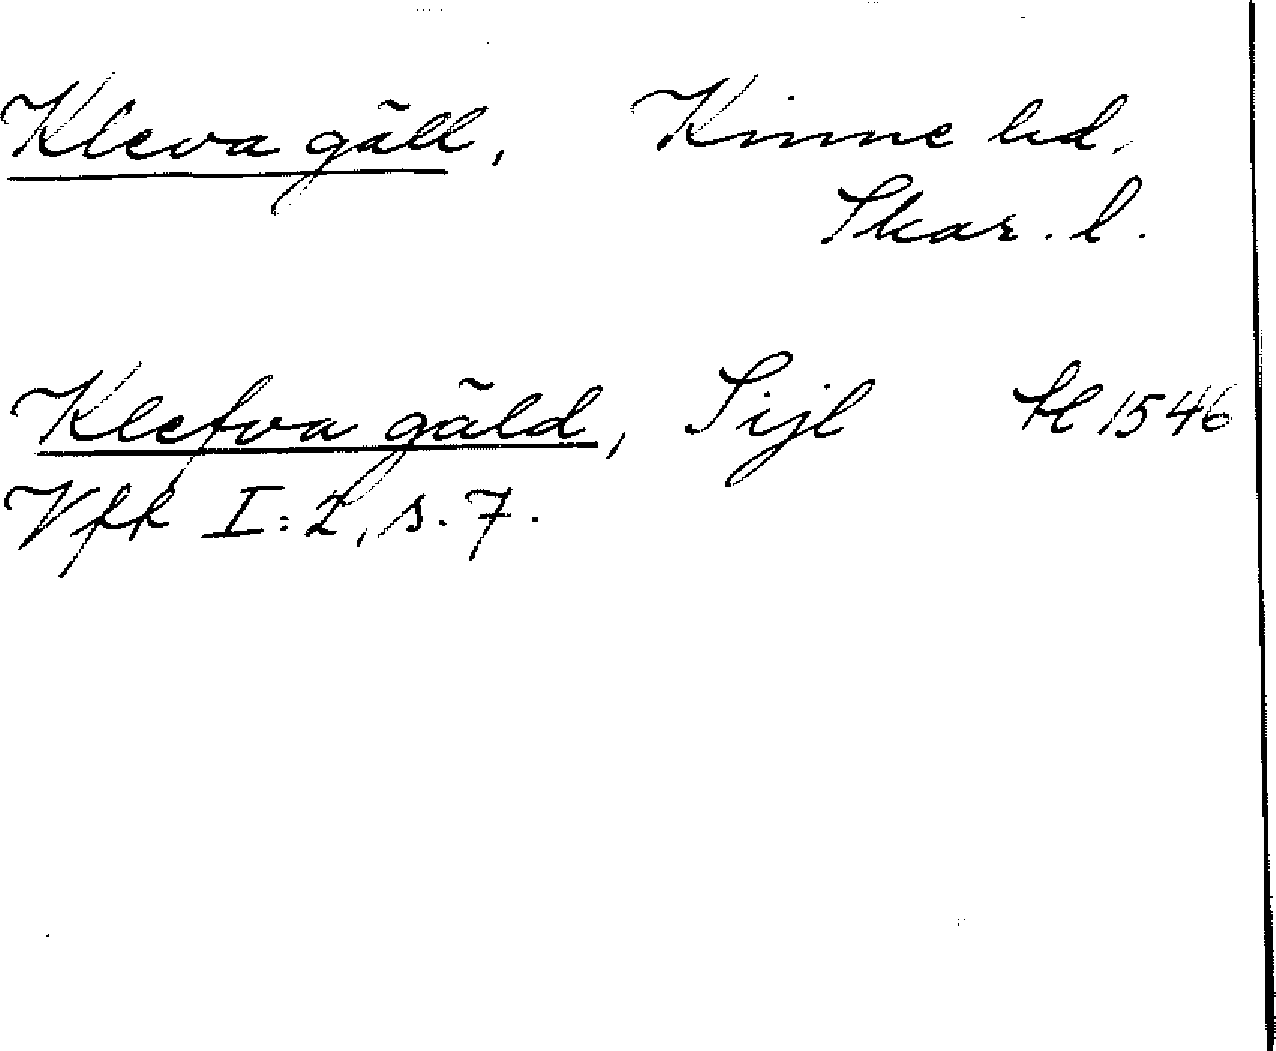 Kleva gäll, Kinne hd,
Skar. l.
Klefva gäld, Sijl 1546
Vfk I:2, s. 7.